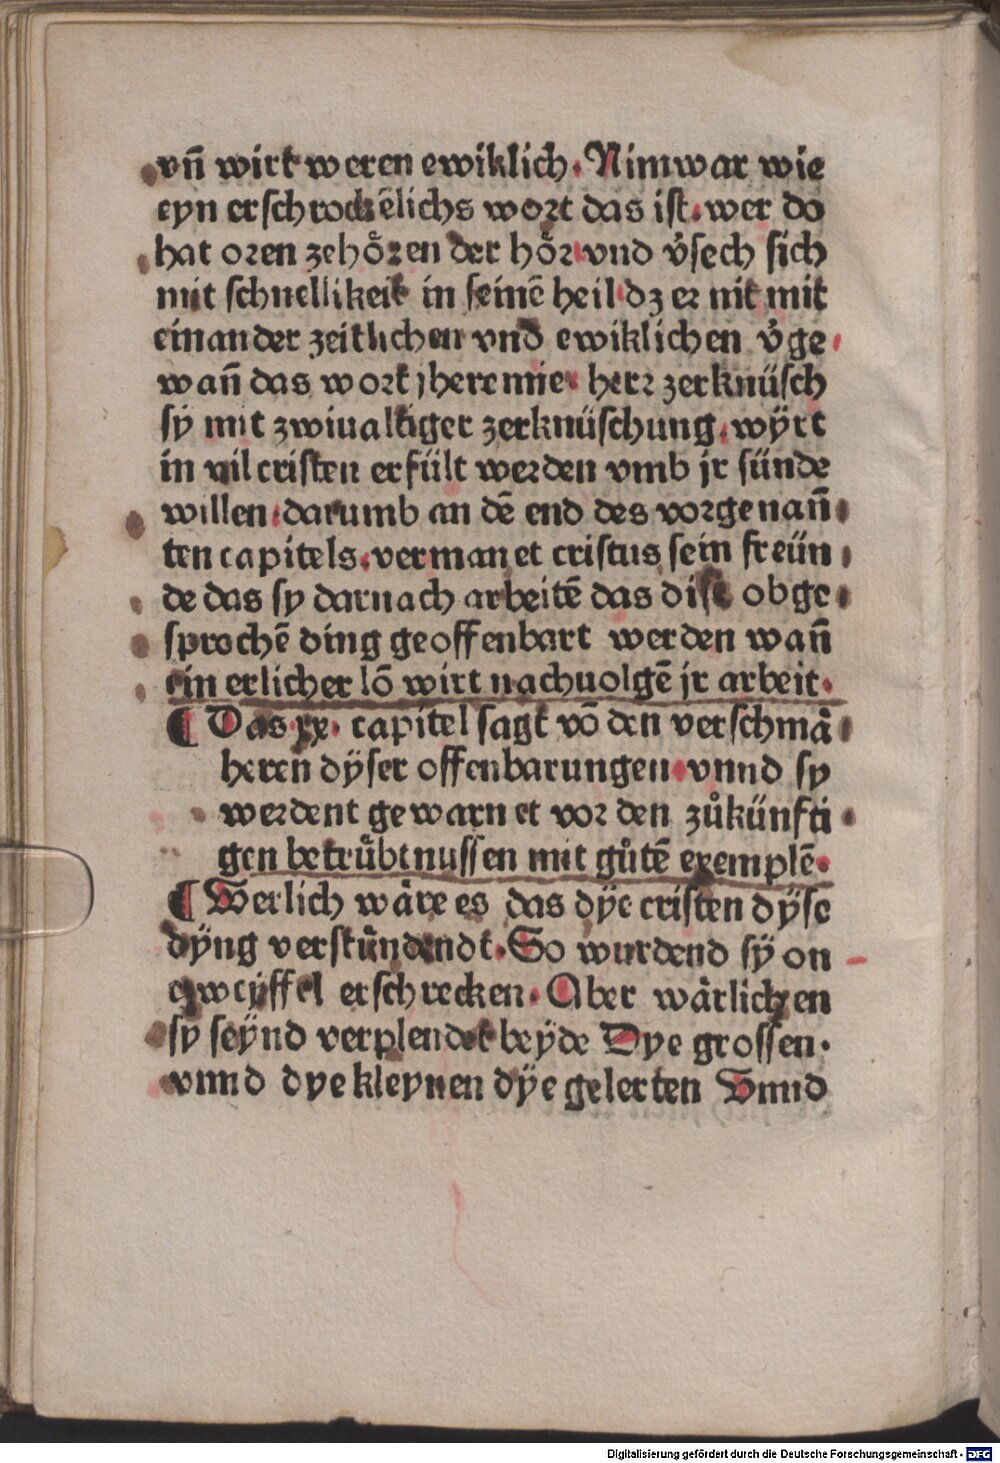 vñ wirt weren ewiklich. Nim war wie
eyn erschrockēlichs wort das ist. wer do
hat oren zehoͤren der hoͤr vnd v̉sech sich
mit schnellikeit in seinē heil dz er nit mit
einander zeitlichen vnd ewiklichen v̉ge
wañ das wort jheremie. herr zerknüsch
sÿ mit zwiualtiger zerknüschung. wÿrt
in vil cristen erfült werden vmb jr sünde
willen. darumb an dē end des vorgenañ
ten capitels. vermanet cristus sein freün
de das sy darnach arbeitē das dise obge
sprochē ding geoffenbart werden wañ
ein erlicher lō wirt nachuolgē jr arbeit.
¶ Das xx. capitel sagt vō den verschmaͤ
heren dÿser offenbarungen. vnnd sy
werdent gewarnet vor den zůkünfti
gen betruͤbtnussen mit gůtē exemplē.
¶ Werlich waͤre es das dÿe cristen dÿse
dÿng verstuͤndendt. So wurdend sÿ on
czweÿffel erschrecken. Aber waͤrlichen
sy seÿnd verplendet beÿde Dye grossen.
vnnd dye kleynen dÿe gelerten Vnnd
Digitalisierung gefördert durch die Deutsche Forschungsgemeinschaft - DFG